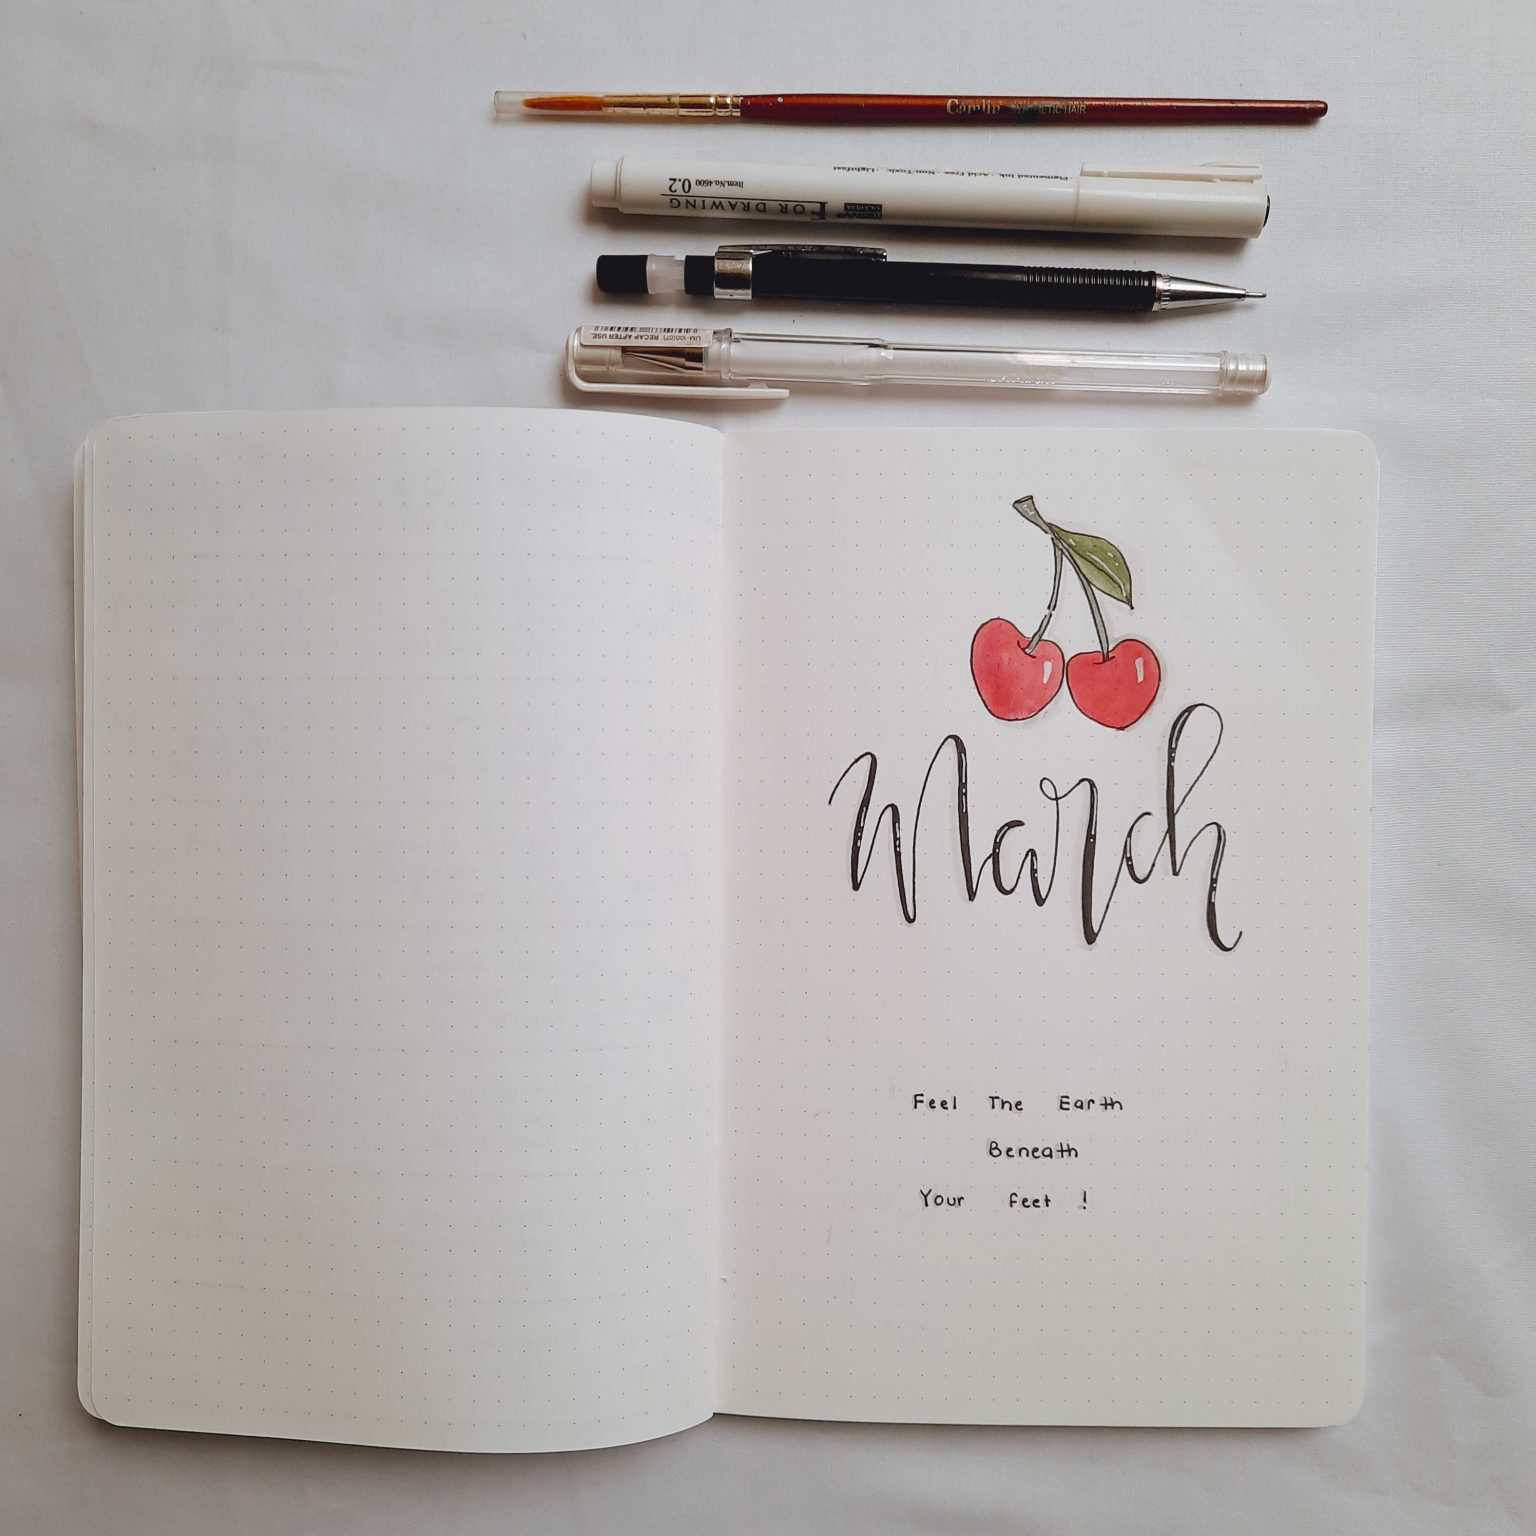 Camlin SYNTHETIC HAIR
Pigmented Ink · Acid Free · Non-Toxic · Lightfast
Item.No.4600
0.2
FOR DRAWING
marvy
UCHIDA
UM-100(07) RECAP AFTER USE.
March
Feel The Earth
Beneath
Your feet !